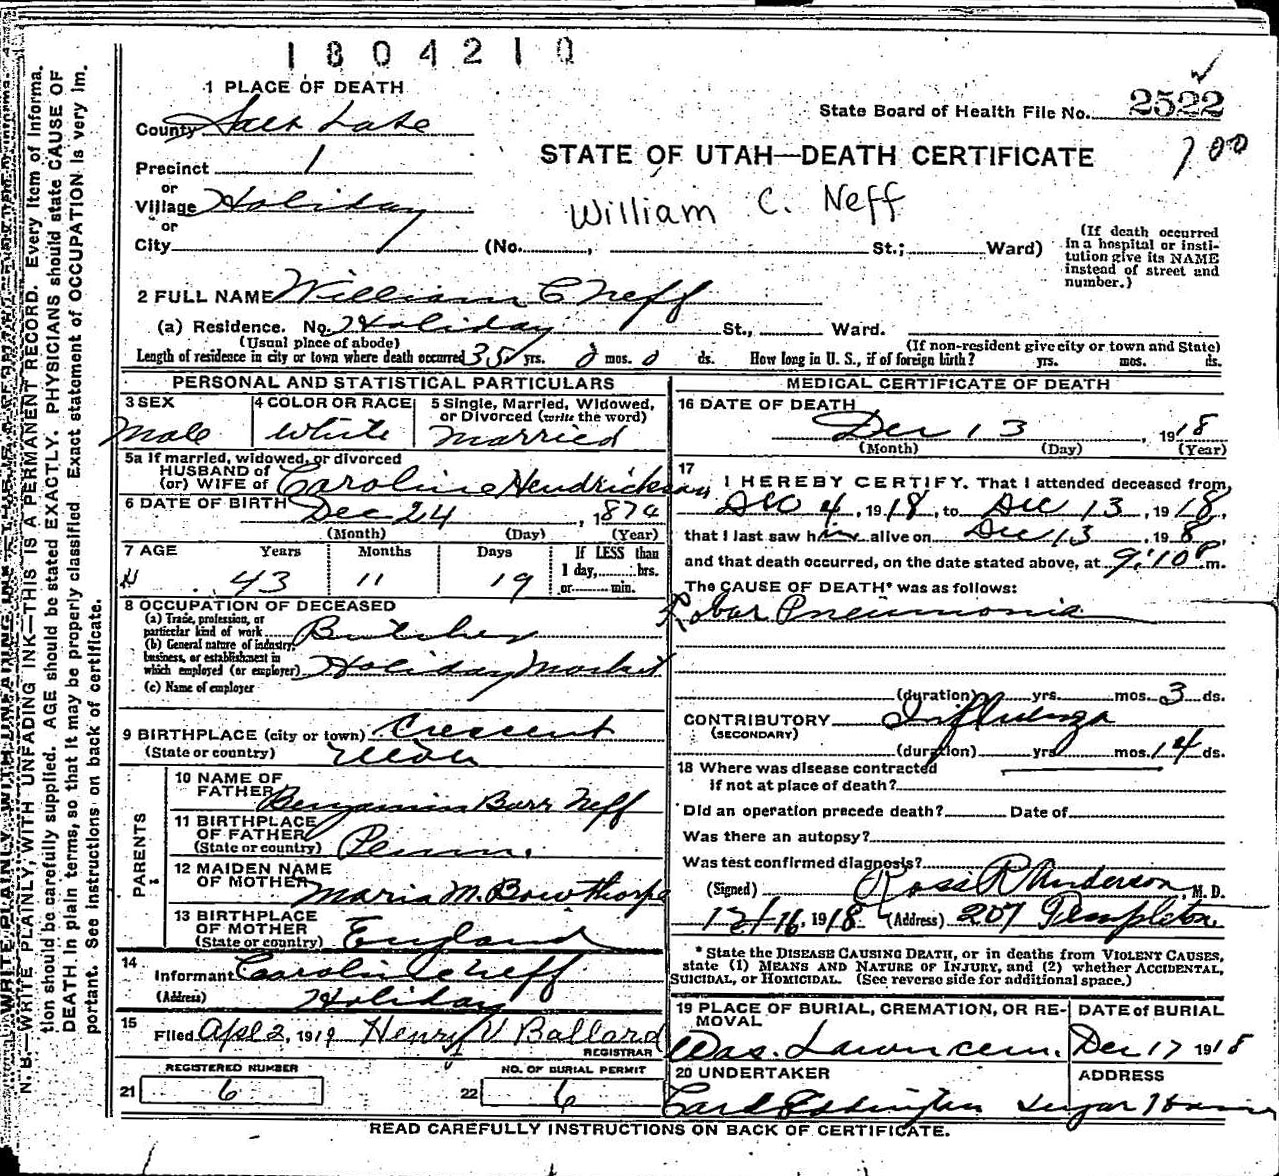 1804210
1 PLACE OF DEATH
State Board of Health File No. 2522
County Salt Lake
STATE OF UTAH—DEATH CERTIFICATE
Precinct 1
or
Village Holiday
William C. Neff
or
City (No. , St.; Ward)
(If death occurred
in a hospital or insti-
tution give its NAME
instead of street and
number.)
2 FULL NAME William C Neff
(a) Residence. No. Holiday St., Ward.
(Usual place of abode) (If non-resident give city or town and State)
Length of residence in city or town where death occurred 35 yrs. 0 mos. 0 ds. How long in U. S., if of foreign birth? yrs. mos. ds.
PERSONAL AND STATISTICAL PARTICULARS
3 SEX
Male
4 COLOR OR RACE
White
5 Single, Married, Widowed,
or Divorced (write the word)
Married
5a If married, widowed, or divorced
HUSBAND of
(or) WIFE of Caroline Hendrickson
6 DATE OF BIRTH Dec 24, 1874
(Month) (Day) (Year)
7 AGE Years Months Days If LESS than
1 day, hrs.
or min.
43 11 19
8 OCCUPATION OF DECEASED
(a) Trade, profession, or
particular kind of work Butcher
(b) General nature of industry,
business, or establishment in
which employed (or employer) Holiday Market
(c) Name of employer
9 BIRTHPLACE (city or town) Crescent
(State or country) Utah
PARENTS
10 NAME OF
FATHER Benjamin Barr Neff
11 BIRTHPLACE
OF FATHER
(State or country) Penn.
12 MAIDEN NAME
OF MOTHER Maria M. Bowthorpe
13 BIRTHPLACE
OF MOTHER
(State or country) England
14
Informant Caroline Neff
(Address) Holiday
15
Filed Apl 2, 1919 Henry V Ballard
REGISTRAR
REGISTERED NUMBER
21 6
NO. OF BURIAL PERMIT
22 6
MEDICAL CERTIFICATE OF DEATH
16 DATE OF DEATH
Dec 13, 1918
(Month) (Day) (Year)
17
I HEREBY CERTIFY, That I attended deceased from
Dec 4, 1918, to Dec 13, 1918,
that I last saw him alive on Dec 13, 198,
and that death occurred, on the date stated above, at 9:10 P m.
The CAUSE OF DEATH* was as follows:
Lobar Pneumonia
(duration) yrs. mos. 3 ds.
CONTRIBUTORY Influenza
(SECONDARY)
(duration) yrs. mos. 14 ds.
18 Where was disease contracted
if not at place of death?
Did an operation precede death? Date of
Was there an autopsy?
Was test confirmed diagnosis?
(Signed) Ross R Anderson, M. D.
12/16, 1918 (Address) 207 Templeton.
* State the DISEASE CAUSING DEATH, or in deaths from VIOLENT CAUSES,
state (1) MEANS AND NATURE OF INJURY, and (2) whether ACCIDENTAL,
SUICIDAL, or HOMICIDAL. (See reverse side for additional space.)
19 PLACE OF BURIAL, CREMATION, OR RE-
MOVAL
DATE of BURIAL
Dec 17 1918
20 UNDERTAKER ADDRESS
Carl Eddington Sugar House
READ CAREFULLY INSTRUCTIONS ON BACK OF CERTIFICATE.
N. B.—WRITE PLAINLY, WITH UNFADING INK—THIS IS A PERMANENT RECORD. Every item of Informa-
tion should be carefully supplied. AGE should be stated EXACTLY. PHYSICIANS should state CAUSE OF
DEATH in plain terms, so that it may be properly classified. Exact statement of OCCUPATION is very im-
portant. See instructions on back of certificate.